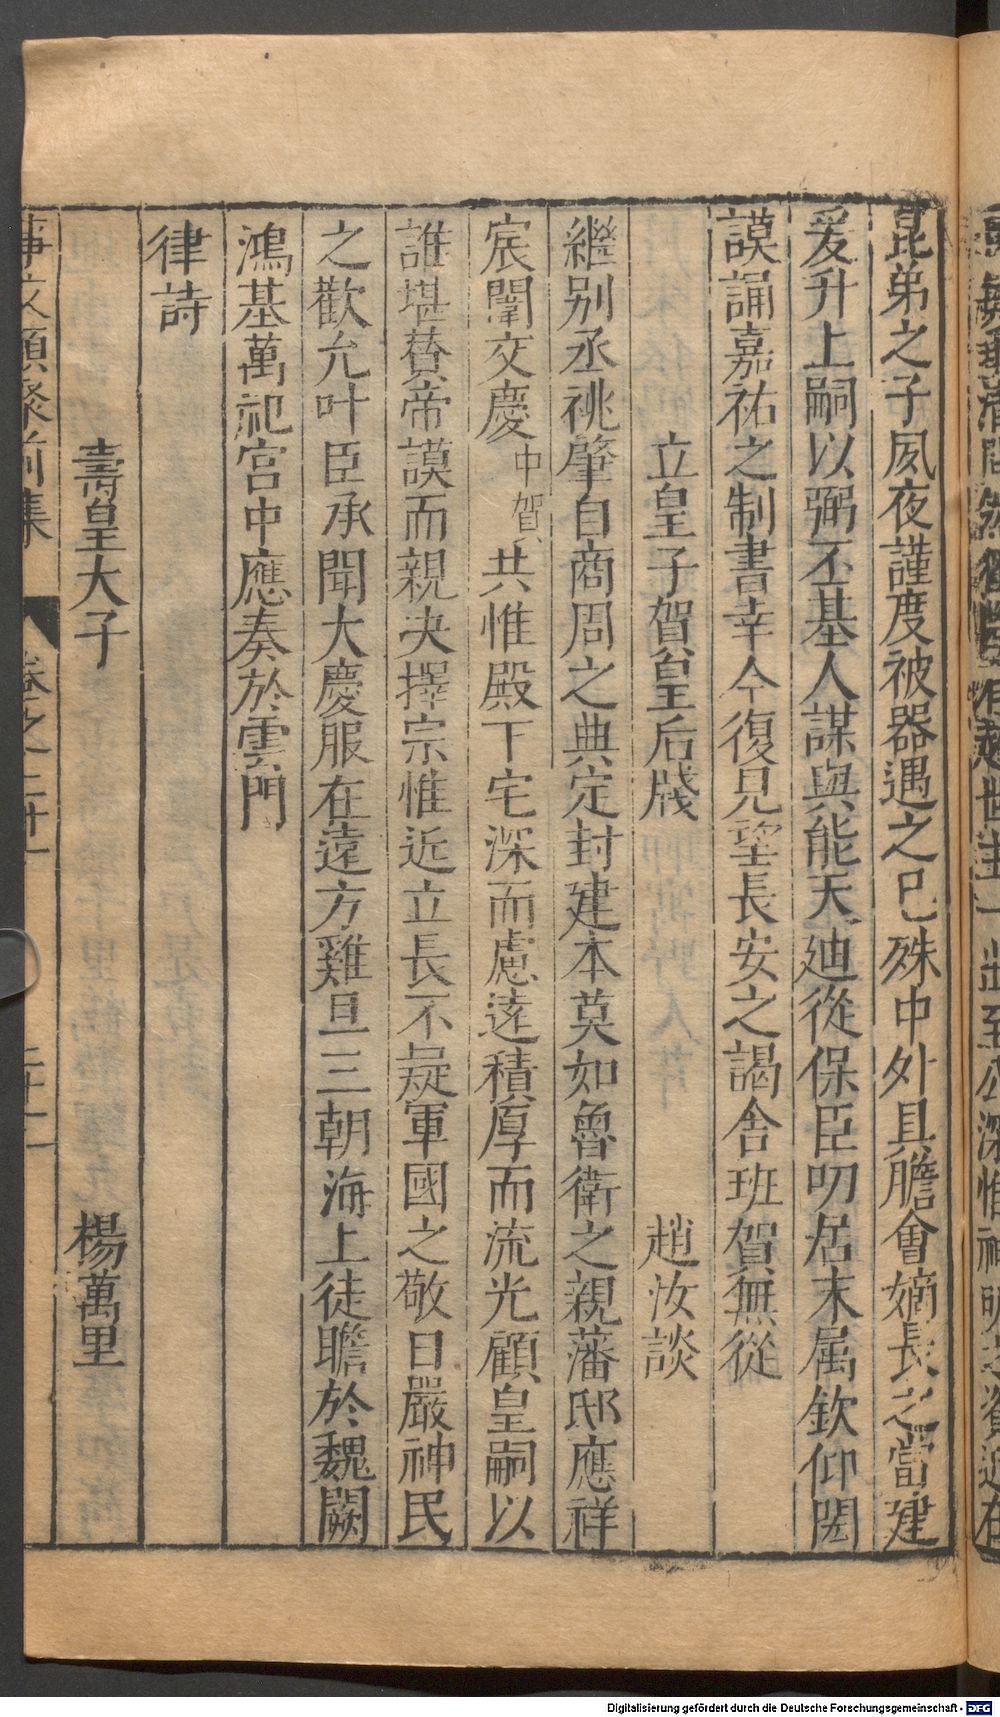 昆弟之子夙夜謹度被器遇之已殊中外具膽會嫡長之當建
爰升上嗣以弼丕基人謀與能天廸從保臣叨居末属欽仰閎
謨誦嘉祐之制書幸今復見望長安之謁舍班賀無從
立皇子賀皇后牋 趙汝談
繼别丞祧肇自商周之典定封建本莫如魯衛之親藩邸應祥
宸闈交慶中賀共惟殿下宅深而慮遠積厚而流光顧皇嗣以
誰堪賛帝謨而親决擇宗惟近立長不疑軍國之敬日嚴神民
之歡允叶臣承聞大慶服在遠方雞旦三朝海上徒瞻於魏闕
鴻基萬祀宫中應奏於雲門
律詩
壽皇太子 楊萬里
事文類聚前集 卷之二十一 二十二
Digitalisierung gefördert durch die Deutsche Forschungsgemeinschaft - DFG